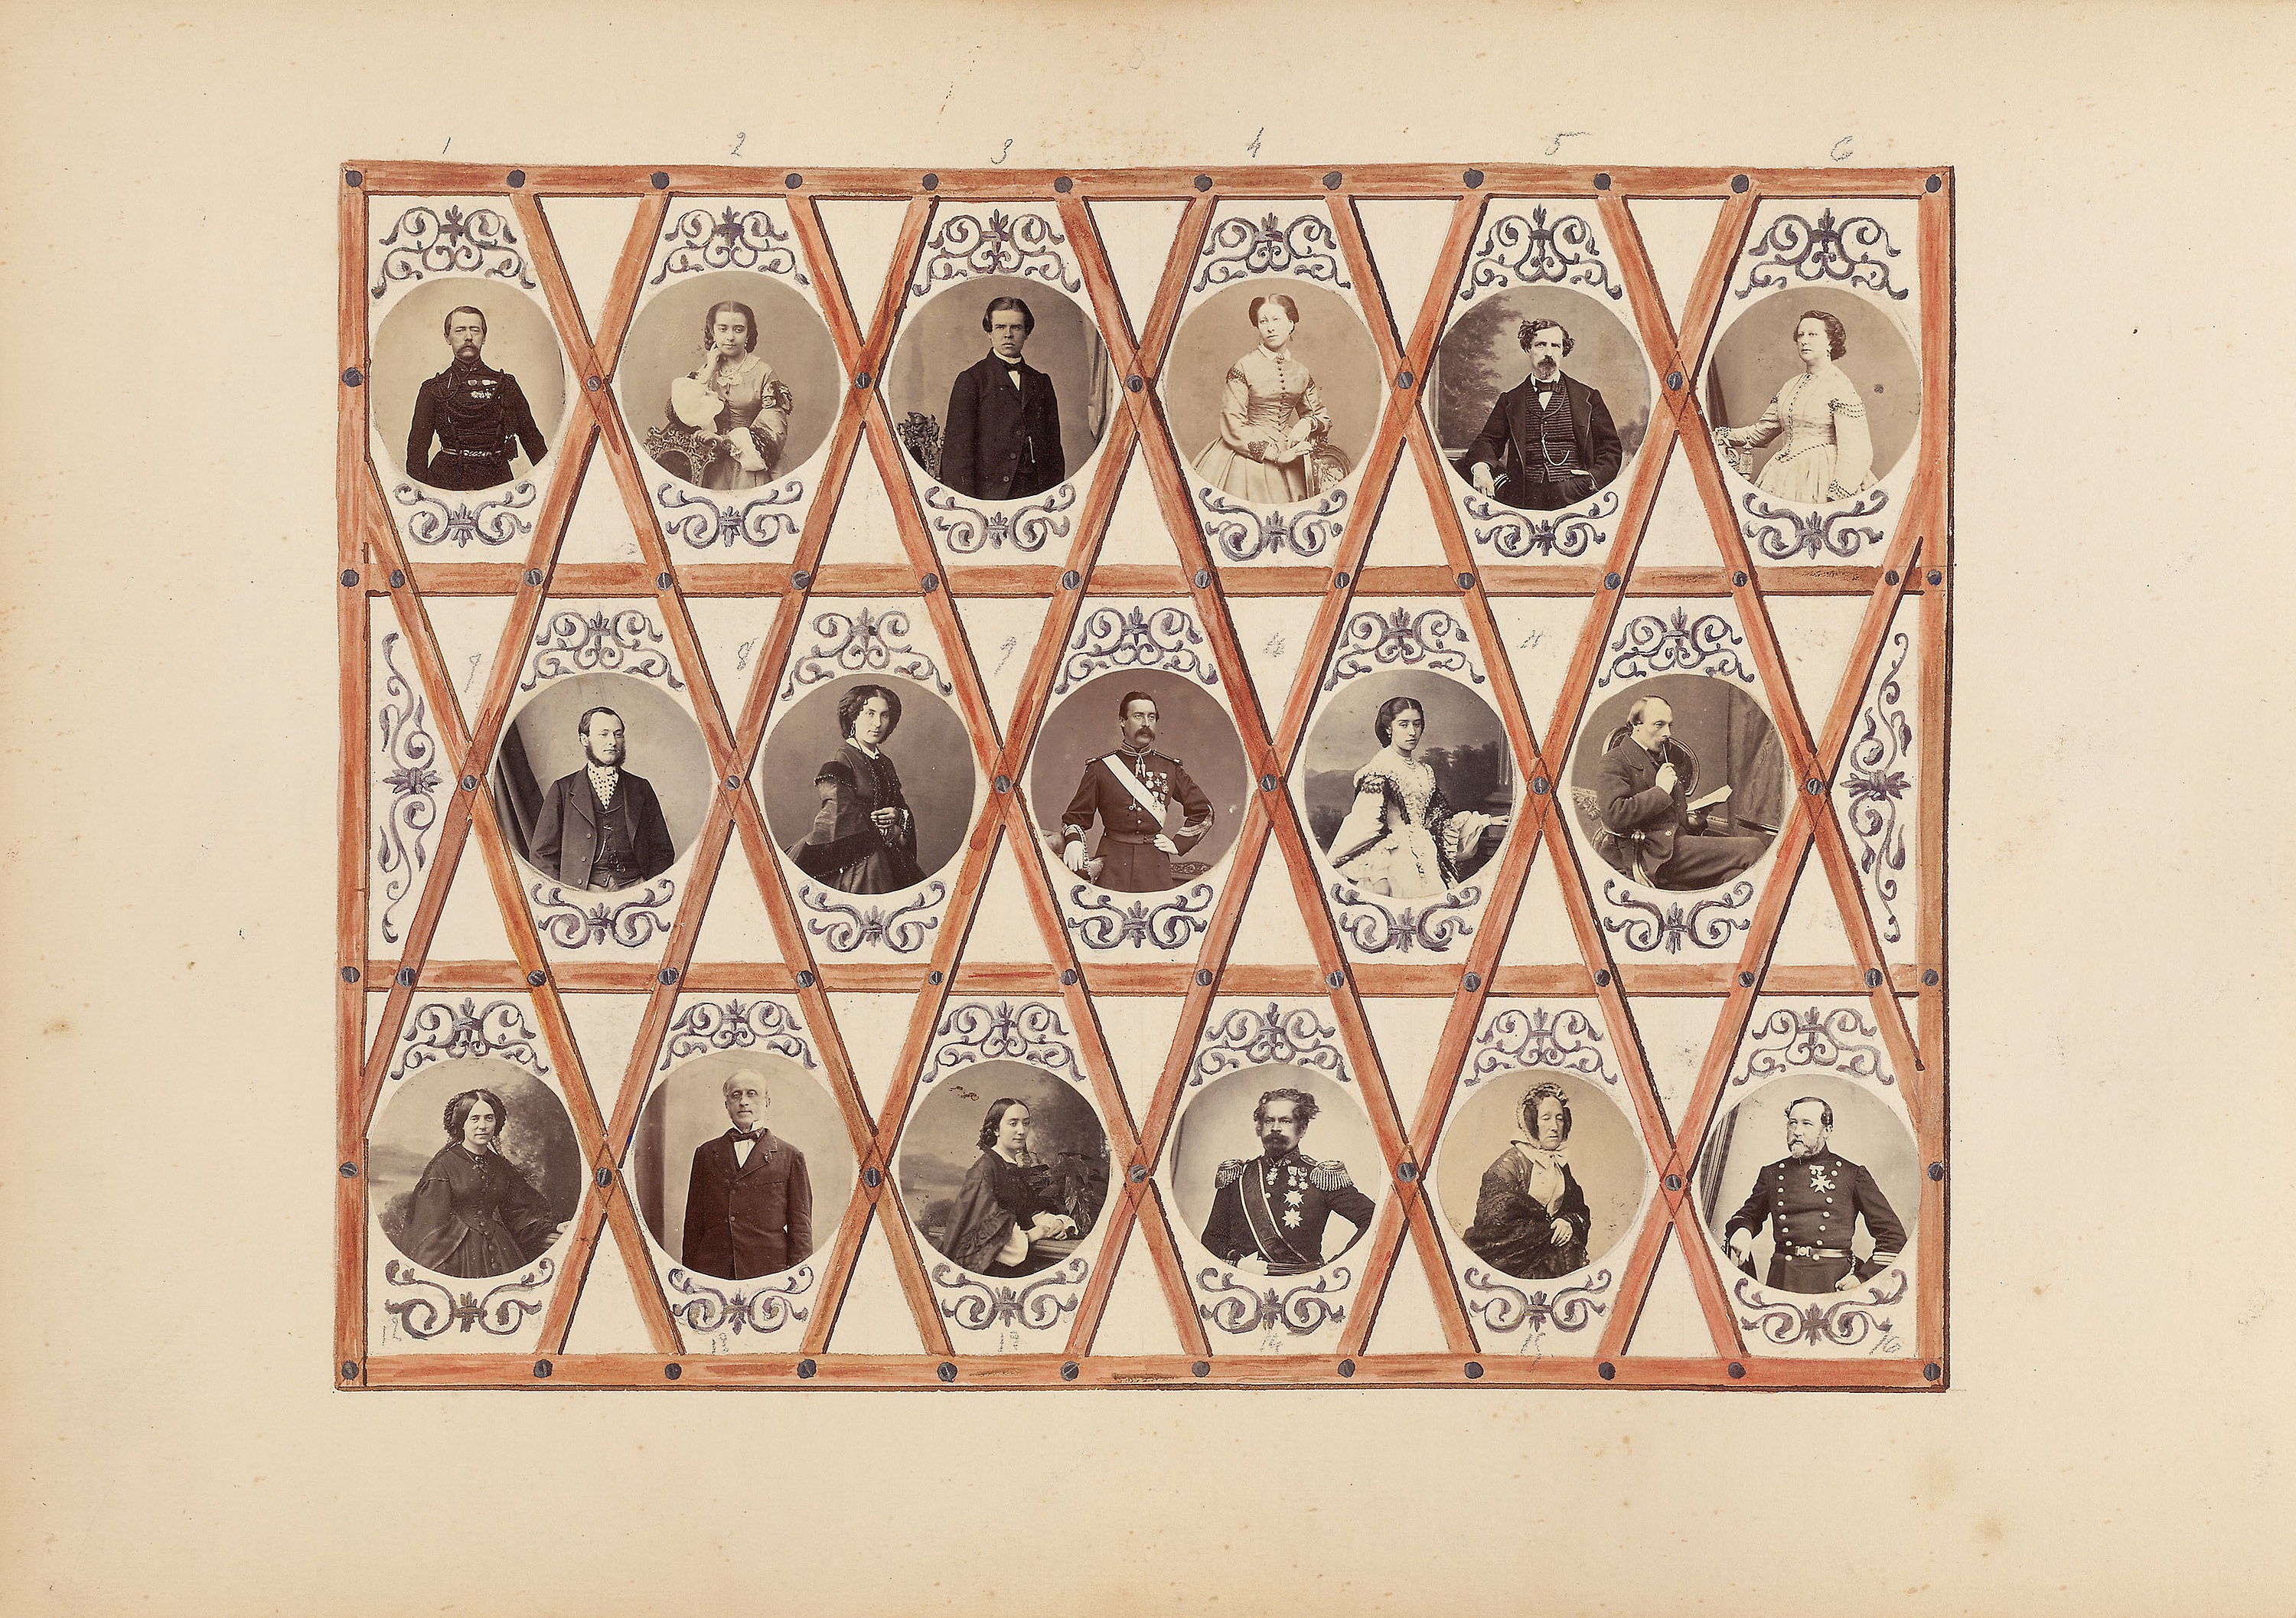 1 2 3 4 5 6
7 8 9 10 11
12 13 13 14 15 16